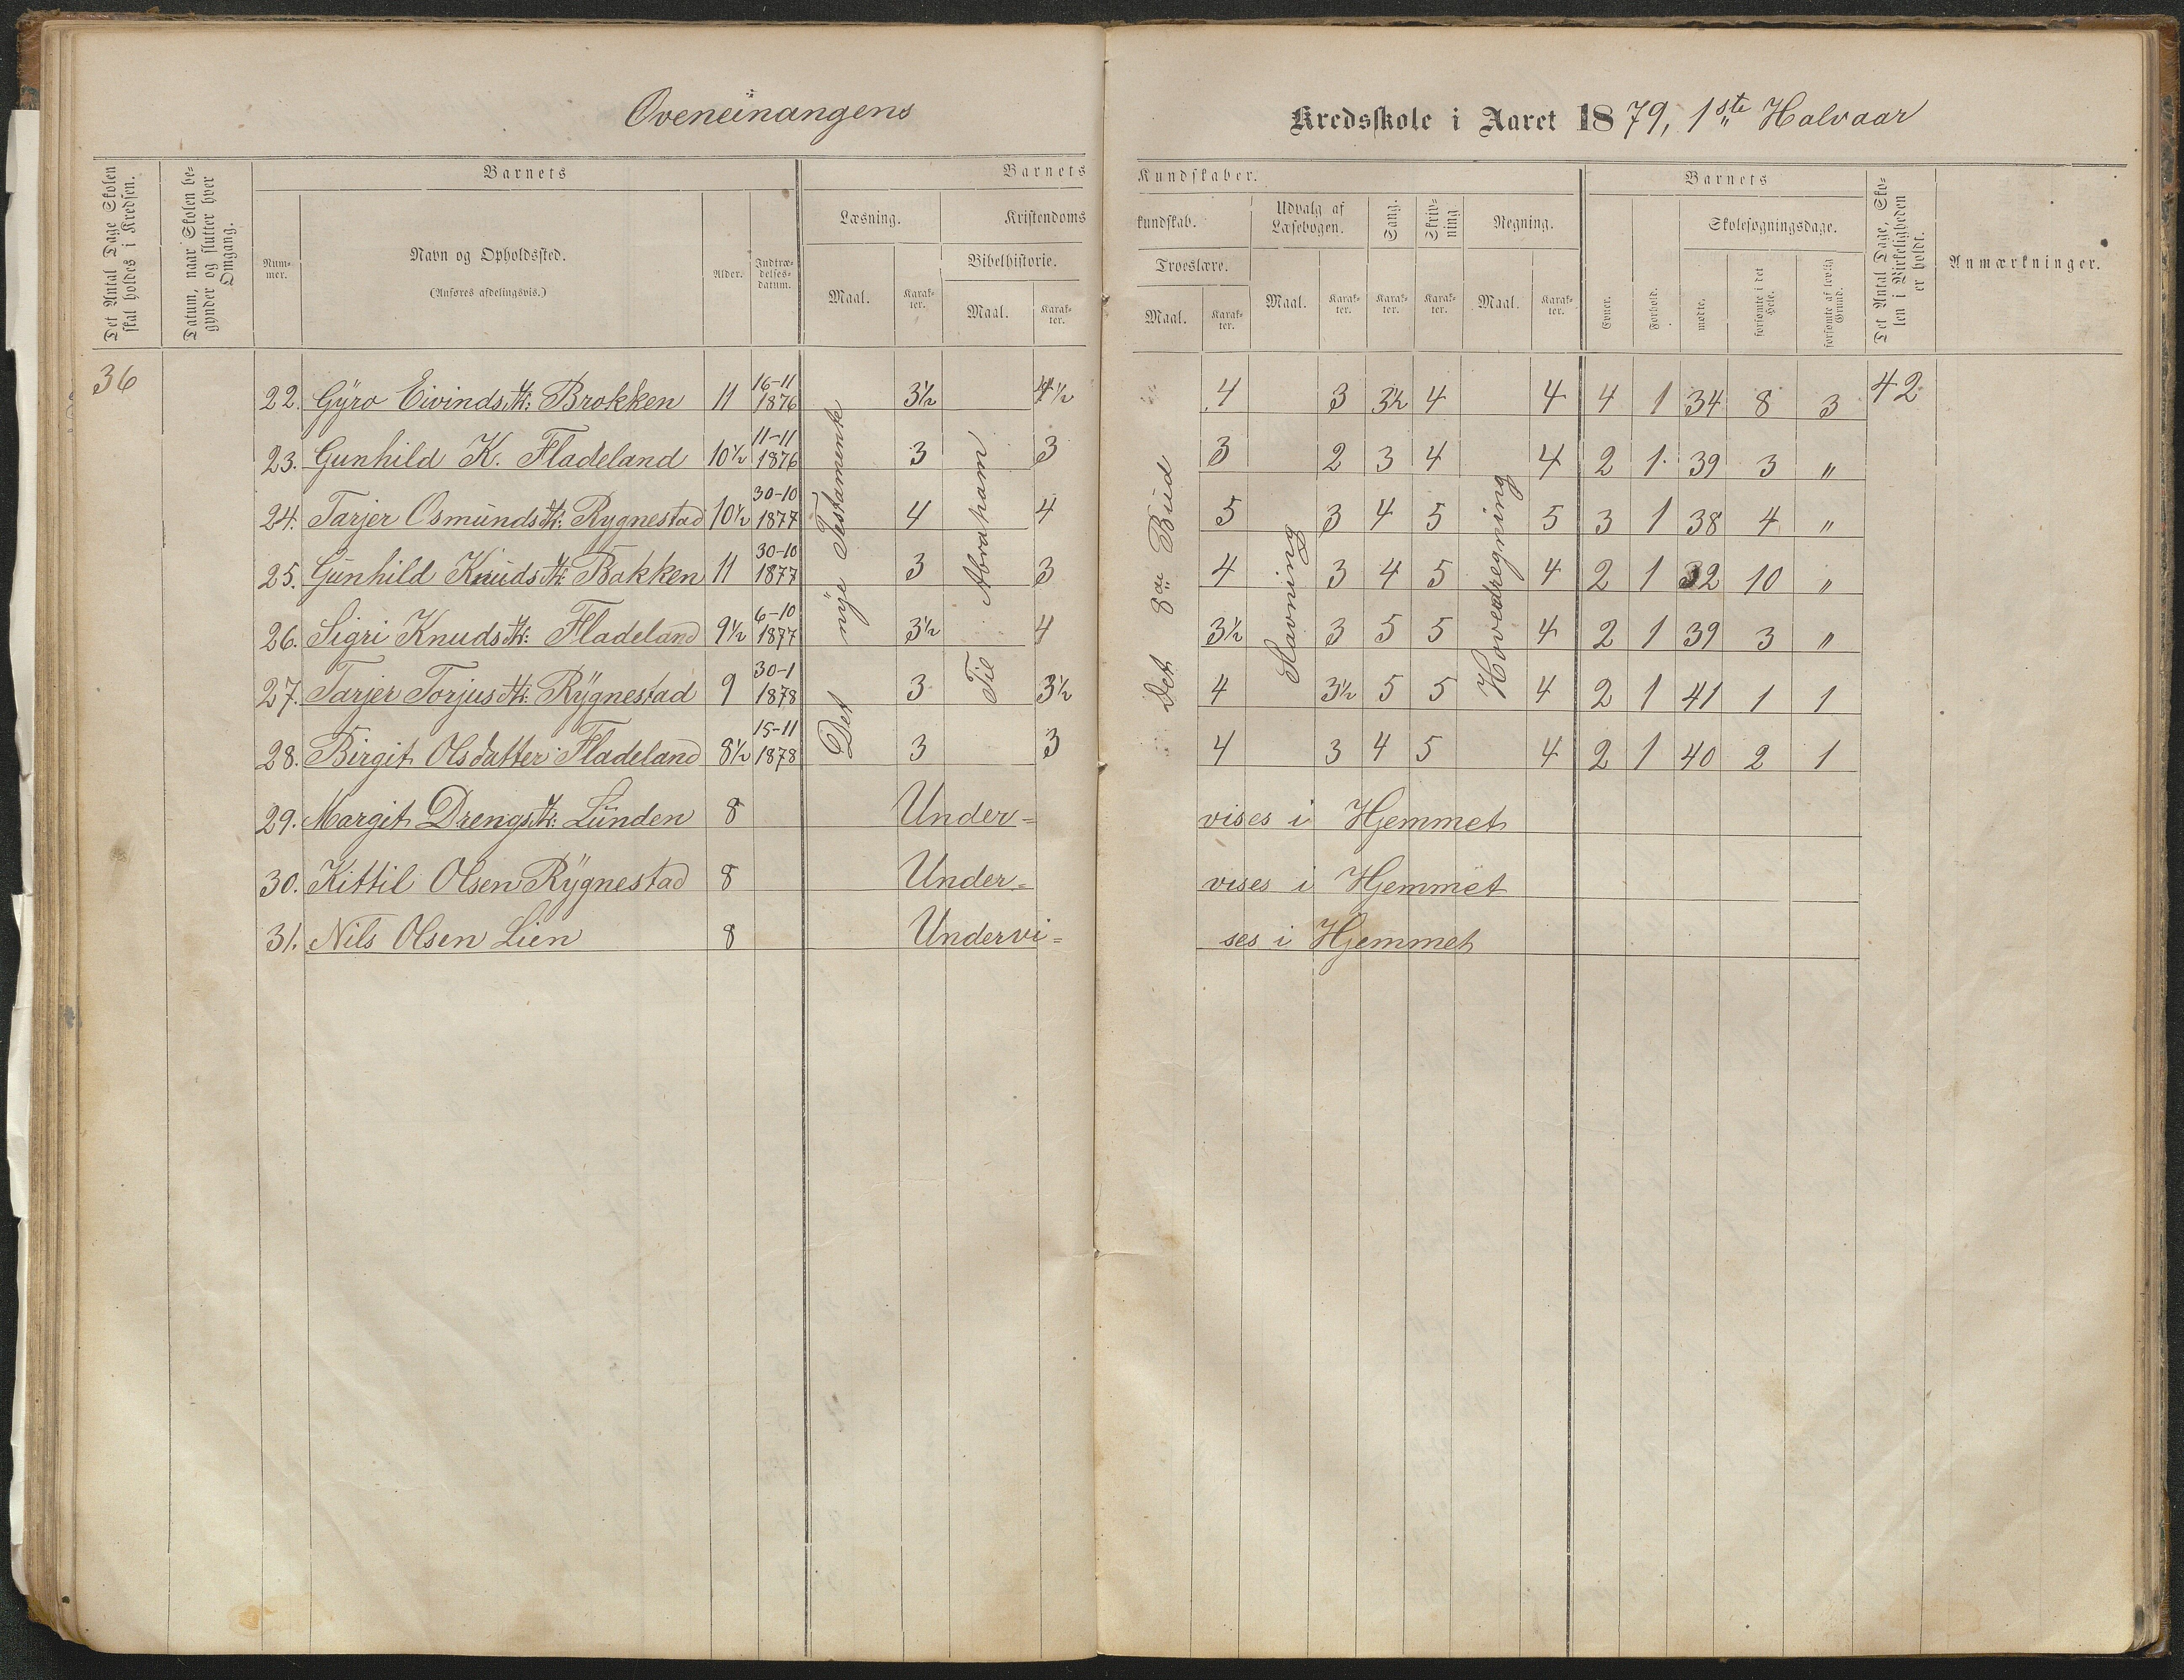 Oveneinangens
Kredsskole i Aaret 1879, 1ste Halvaar
Det Antal Dage Skolen skal holdes i Kredsen.
Datum, naar Skolen begynder og slutter hver Omgang.
Barnets
Nummer.
Navn og Opholdssted.
(Anføres afdelingsvis.)
Alder.
Indtrædelsesdatum.
Barnets
Kundskaber.
Læsning.
Maal.
Karakter.
Kristendoms
kundskab.
Bibelhistorie.
Maal.
Karakter.
Troeslære.
Maal.
Karakter.
Udvalg af Læsebogen.
Maal.
Karakter.
Sang.
Karakter.
Skrivning.
Karakter.
Regning.
Maal.
Karakter.
Barnets
Evner.
Forhold.
Skolesøgningsdage.
mødte.
forsømte i det Hele.
forsømte af lovlig Grund.
Det Antal Dage, Skolen i Virkeligheden er holdt.
Anmærkninger.
36
Det nye Testamente
Til Abraham
Det 8de Bud
Stavning
Hovedregning
42
22. Gyro Eivindsdtr: Brokken 11 16-11 1876 3½ 4½ 4 3 3½ 4 4 4 1 34 8 3
23. Gunhild K. Fladeland 10½ 11-11 1876 3 3 3 2 3 4 4 2 1 39 3 "
24. Tarjer Osmundsdtr: Rygnestad 10½ 30-10 1877 4 4 5 3 4 5 5 3 1 38 4 "
25. Gunhild Knudsdtr: Bakken 11 30-10 1877 3 3 4 3 4 5 4 2 1 32 10 "
26. Sigri Knudsdtr: Fladeland 9½ 6-10 1877 3½ 4 3½ 3 5 5 4 2 1 39 3 "
27. Tarjer Torjusdtr: Rygnestad 9 30-1 1878 3 3½ 4 3½ 5 5 4 2 1 41 1 1
28. Birgit Olsdatter Fladeland 8½ 15-11 1878 3 3 4 3 4 5 4 2 1 40 2 1
29. Margit Drengsdtr: Lunden 8 Under= vises i Hjemmet
30. Kittil Olsen Rygnestad 8 Under= vises i Hjemmet
31. Nils Olsen Lien 8 Undervi= ses i Hjemmet